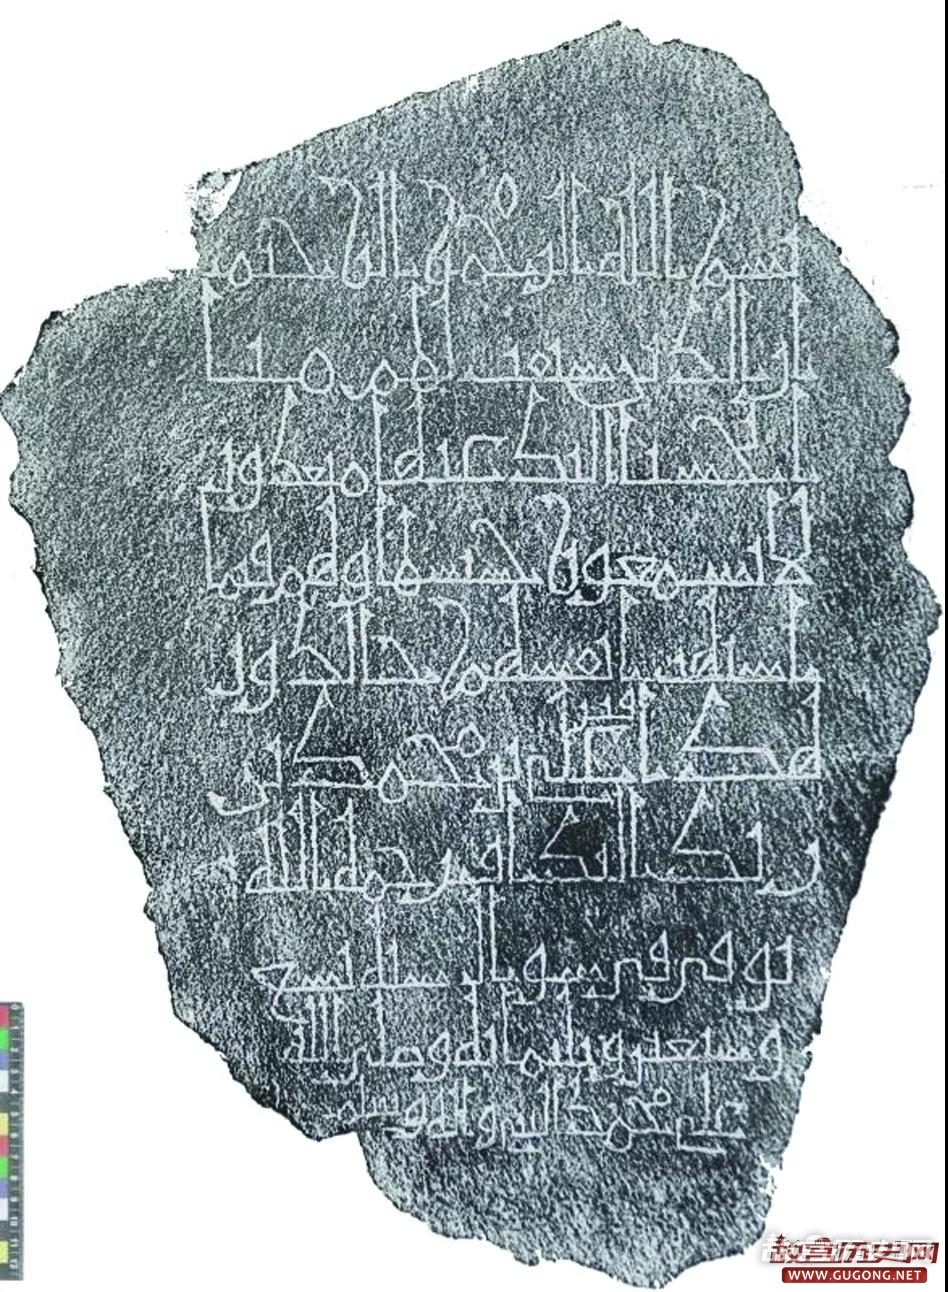 بسم الله الرحمن الرحيم
ان الذين سبقت لهم منا
الحسنى اولئك عنها مبعدون
لا يسمعون حسيسها وهم فيما
اشتهت انفسهم خالدون
هذا قبر محمد بن
رحمه الله
توفي في شوال سنة
وثلثمائة وصلى الله
على محمد النبي وآله وسلم
故宫历史网
WWW.GUGONG.NET